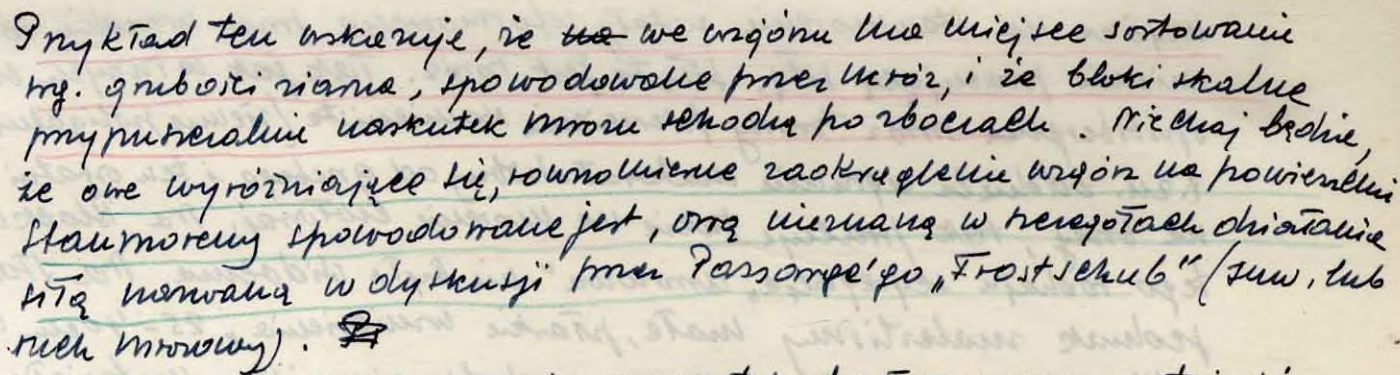 Przykład ten wskazuje, że ~~na~~ we wzgórzu ma miejsce sortowanie
wg. grubości ziarna, spowodowane przez mróz, i że bloki skalne
przypuszczalnie naskutek mrozu schodzą po zboczach. Niechaj będzie,
że owe wyróżniające się, równomierne zaokrąglenie wzgórz na powierzchni
Staumoreny spowodowane jest, ową nieznaną w szczegółach działania
siłą nazwaną w dyskusji przez Passarge'go „Frostschub" (suw, lub
ruch mrozowy).